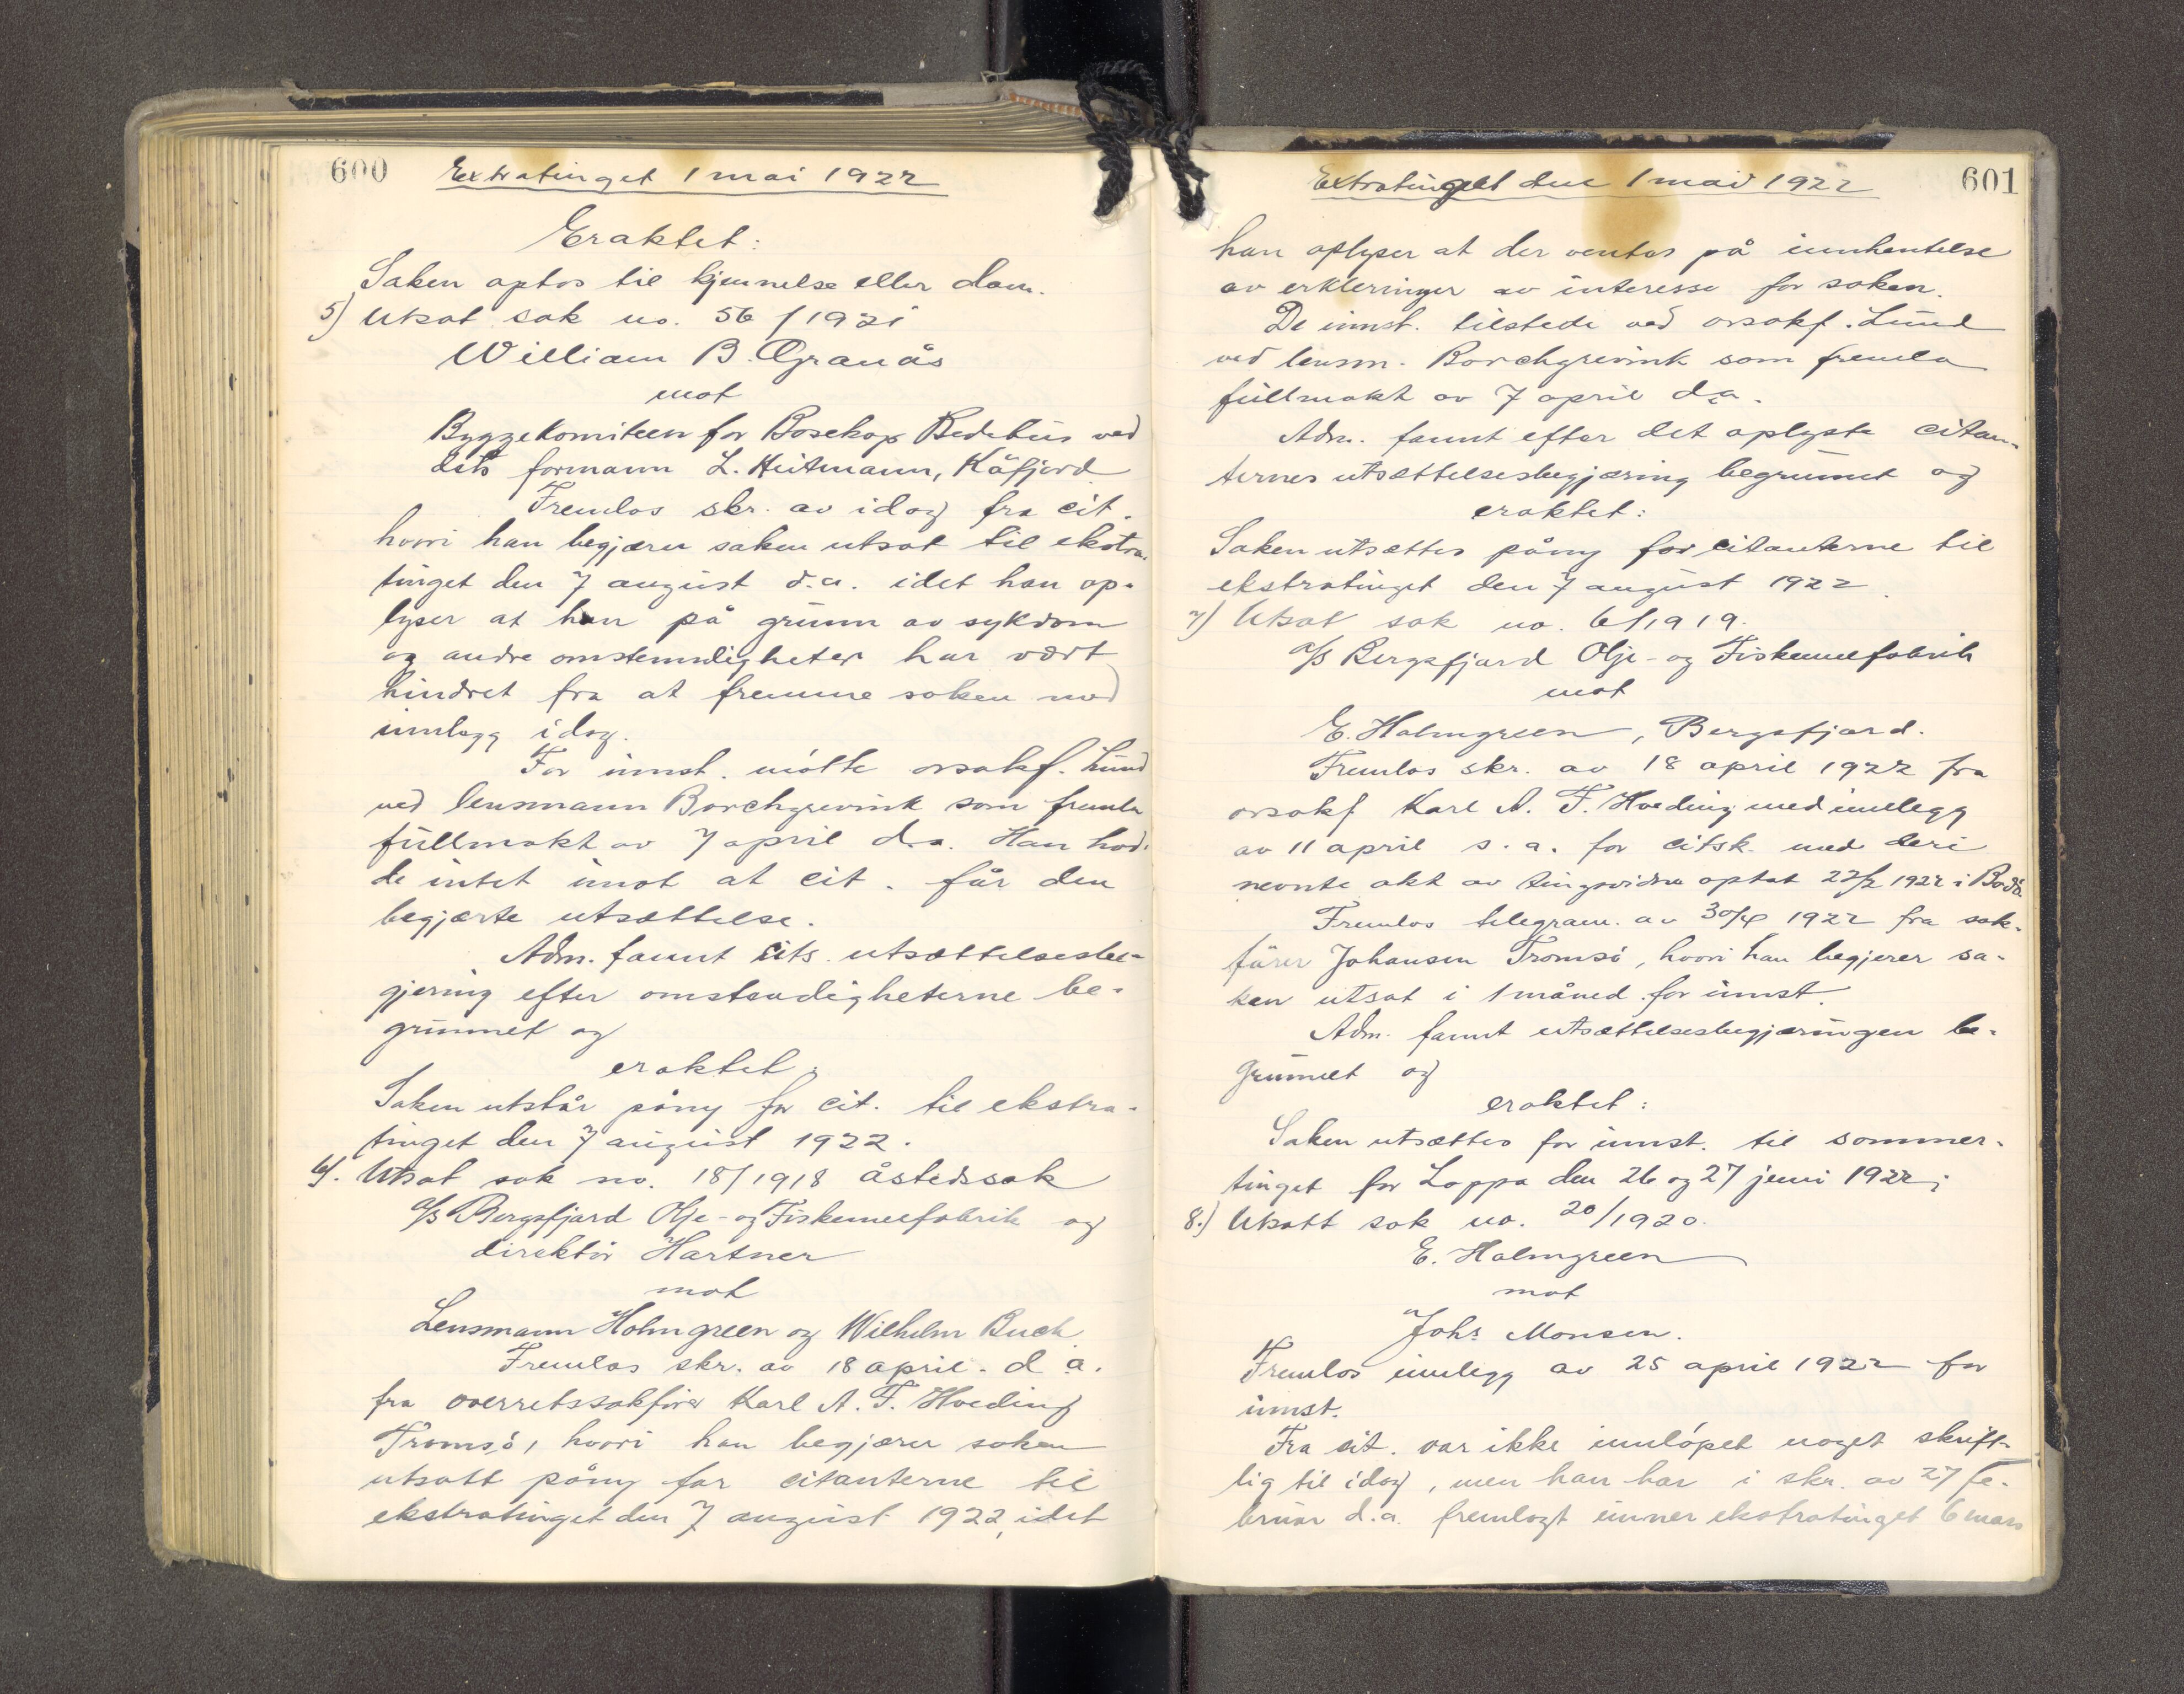 600 Extratinget 1 mai 1922
Eraktet:
Saken optas til kjennelse eller dom.
5) Utsat sak no. 56/1921
William B. Granås
mot
Byggekomiteen for Bosekop Bedehus ved
dets formann L. Heitmann, Kåfjord.
Fremlas skr. av idag fra cit.
hvori han begjærer saken utsat til ekstra-
tinget den 7 august d.a. idet han op-
lyser at han på grunn av sykdom
og andre omstendigheter har vært
hindret fra at fremme saken med
innlegg idag.
For innst. møtte orsakf. Lund
ved lensmann Borchgrevink som fremla
fullmakt av 7 april d.a. Han had-
de intet imot at cit. får den
begjærte utsættelse.
Adm. fannt cits. utsættelsesbe-
gjering efter omstendigheterne be-
grunnet og
eraktet:
Saken utstår påny for cit. til ekstra-
tinget den 7 august 1922.
6). Utsat sak no. 18/1918 åstedssak
A/S Bergsfjord Olje- og Fiskemelfabrik og
direktør Hartner
mot
Lensmann Holmgreen og Wilhelm Buck
Fremlas skr. av 18 april. d a.
fra overretssakfører Karl A. F. Hveding
Tromsö, hvori han begjærer saken
utsatt påny for citanterne til
ekstratinget den 7 august 1922, idet
Extratinget den 1 mai 1922 601
han oplyser at der ventes på innhentelse
av erkleringer av interesse for saken.
De innst. tilstede ved orsakf. Lund
ved lensm. Borchgrevink som fremla
fullmakt av 7 april d.a.
Adm. fannt efter det oplyste citan-
ternes utsættelsesbegjæring begrunnet og
eraktet:
Saken utsættes påny for citanterne til
ekstratinget den 7 august 1922.
7) Utsat sak no. 6/1919.
A/S Bergsfjord Olje- og Fiskemelfabrik
mot
E. Holmgreen, Bergsfjord.
Fremlas skr. av 18 april 1922 fra
orsakf Karl A. F. Hveding med innlegg
av 11 april s.a. for citsk. med deri
nevnte akt av tingsvidne optat 22/2 1922 i Bodø.
Fremlas telegram. av 30/4 1922 fra sak-
fører Johansen Tromsö, hvori han begjerer sa-
ken utsat i 1 måned for innst.
Adm. fannt utsættelsesbegjæringen be-
grunnet og
eraktet:
Saken utsættes for innst. til sommer-
tinget for Loppa den 26 og 27 juni 1922;
8.) Utsatt sak no. 20/1920.
E. Holmgreen
mot
Johs Monsen.
Fremlas innlegg av 25 april 1922 for
innst.
Fra cit. var ikke innløpet noget skrift-
lig til idag, men han har i skr. av 27 fe-
bruar d.a. fremlagt unner ekstratinget 6 mars